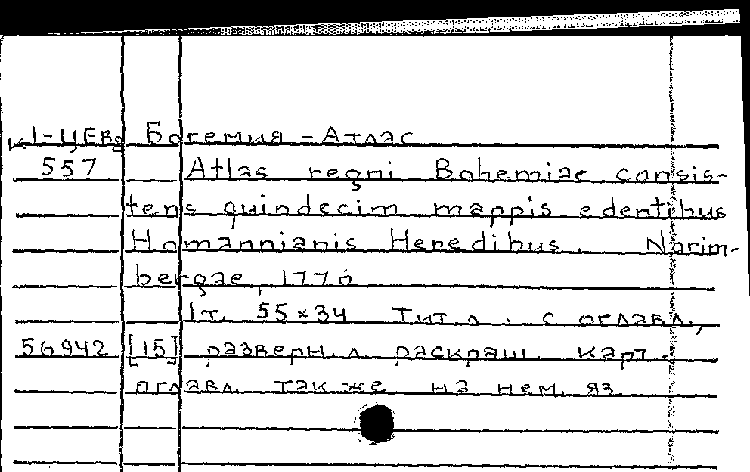 к1-ЦЕВ Богемия - Атлас
557 Atlas regni Bohemiae consis-
tens quindecim mappis edentibus
Homannianis Heredibus. Norim-
bergae, 1776
1 т. 55×34 Тит. л. с оглавл.,
56942 [15] разверн. л. раскраш. карт.
оглавл. также на нем. яз.